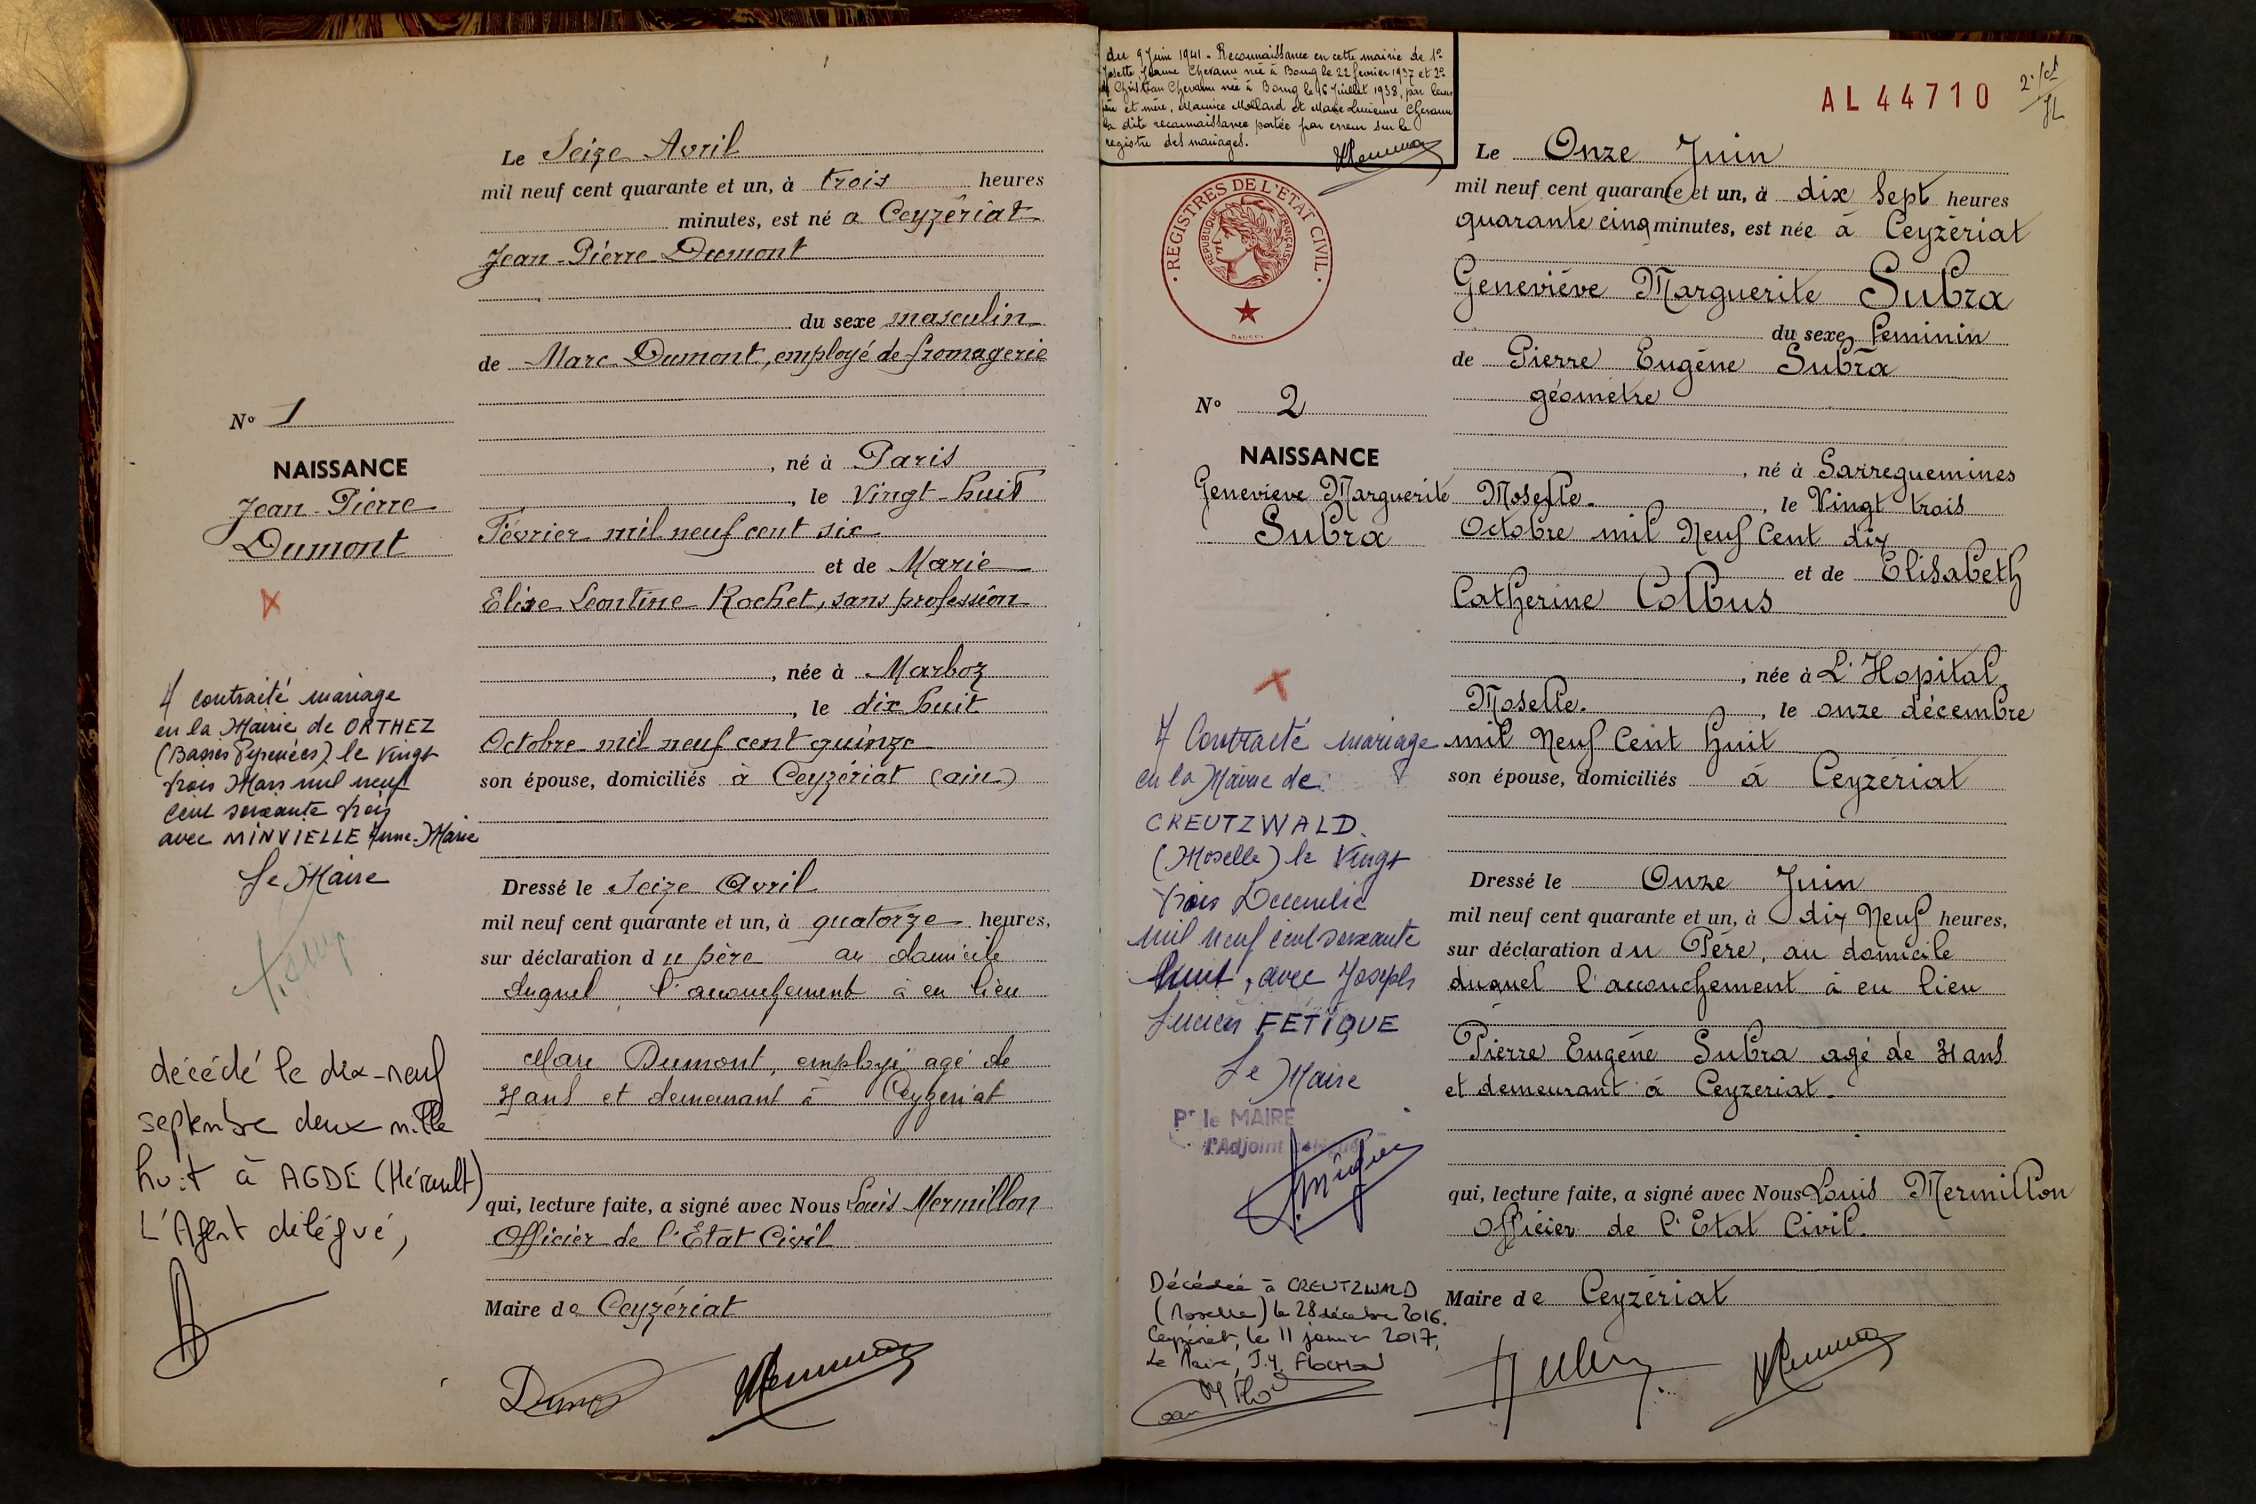 Le Seize Avril
mil neuf cent quarante et un, à trois heures
minutes, est né a Ceyzériat
Jean-Pierre Dumont
du sexe masculin
de Marc Dumont, employé de fromagerie
, né à Paris
, le Vingt-huit
Février mil neuf cent six
et de Marie
Elise Leontine Rochet, sans profession
, née à Marboz
, le dix huit
Octobre mil neuf cent quinze
son épouse, domiciliés à Ceyzériat (ain)
Dressé le Seize Avril
mil neuf cent quarante et un, à quatorze heures,
sur déclaration du père au domicile
duquel l'accouchement à eu lieu
Marc Dumont, employé agé de
ans et demeurant à Ceyzeriat
qui, lecture faite, a signé avec Nous Louis Mermillon
Officier de l'État Civil
Maire de Ceyzériat
No 1
NAISSANCE
Jean-Pierre
Dumont
contraité mariage
en la Mairie de ORTHEZ
(Basses Pyrenées) le Vingt
trois Mars mil neuf
cent soixante trois
avec MINVIELLE Anne-Marie
Le Maire
décédé le dix-neuf
septembre deux mille
huit à AGDE (Hérault)
L'Agent délégué,
du 9 Juin 1941 - Reconnaissance en cette mairie de 1º
Josette Jeanne née à Bourg le 22 fevrier 1937 et 2º
Christian né à Bourg le 16 Juillet 1938, par leurs
père et mère, Maurice Mollard et Marie Lucienne
la dite reconnaissance portée par erreur sur le
registre des mariages.
AL 44710
REGISTRES DE L'ETAT CIVIL
REPUBLIQUE FRANÇAISE
Le Onze Juin
mil neuf cent quarante et un, à dix sept heures
quarante cinq minutes, est née à Ceyzériat
Geneviéve Marguerite Subra
du sexe feminin
de Pierre Eugène Subra
géometre
, né à Sarreguemines
Moselle. , le Vingt trois
Octobre mil Neuf Cent dix
et de Elisabeth
Catherine Colbus
, née à L'Hopital
Moselle. , le onze décembre
mil Neuf Cent huit
son épouse, domiciliés à Ceyzeriat
Dressé le Onze Juin
mil neuf cent quarante et un, à dix Neuf heures,
sur déclaration du Père, au domicile
duquel l'accouchement à eu lieu
Pierre Eugéne Subra agé de 31 ans
et demeurant à Ceyzeriat.
qui, lecture faite, a signé avec Nous Louis Mermillon
Officier de l'Etat Civil.
Maire de Ceyzériat
No 2
NAISSANCE
Genevieve Marguerite
Subra
Contracté mariage
en la Mairie de
CREUTZWALD.
(Moselle) le Vingt
trois Decembre
mil neuf cent soixante
huit, avec Joseph
Lucien FETIQUE
Le Maire
Pr le MAIRE
l'Adjoint
Décédée à CREUTZWALD
(Moselle) le 28 décembre 2016.
Ceyzériat, le 11 janvier 2017,
Le Maire, J.Y. FLOCHON